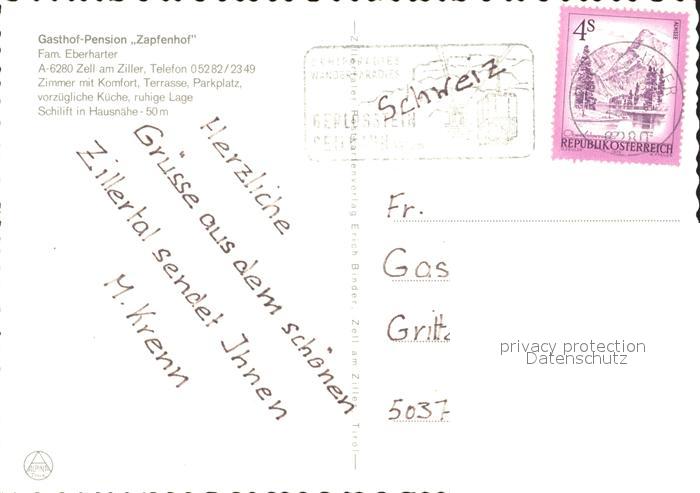 Gasthof-Pension „Zapfenhof"
Fam. Eberharter
A-6280 Zell am Ziller, Telefon 05282/2349
Zimmer mit Komfort, Terrasse, Parkplatz,
vorzügliche Küche, ruhige Lage
Schilift in Hausnähe - 50 m
Herzliche
Grüsse aus dem schönen
Zillertal sendet Ihnen
M. Krenn
ALPINA
Zillertaler Postkartenverlag Erich Binder, Zell am Ziller, Tirol
WANDERPARADIES
GERLOSSTEIN
Schweiz
4S
ALMSEE
6280
REPUBLIK ÖSTERREICH
Fr.
Gas
Gritt
5037
privacy protection
Datenschutz